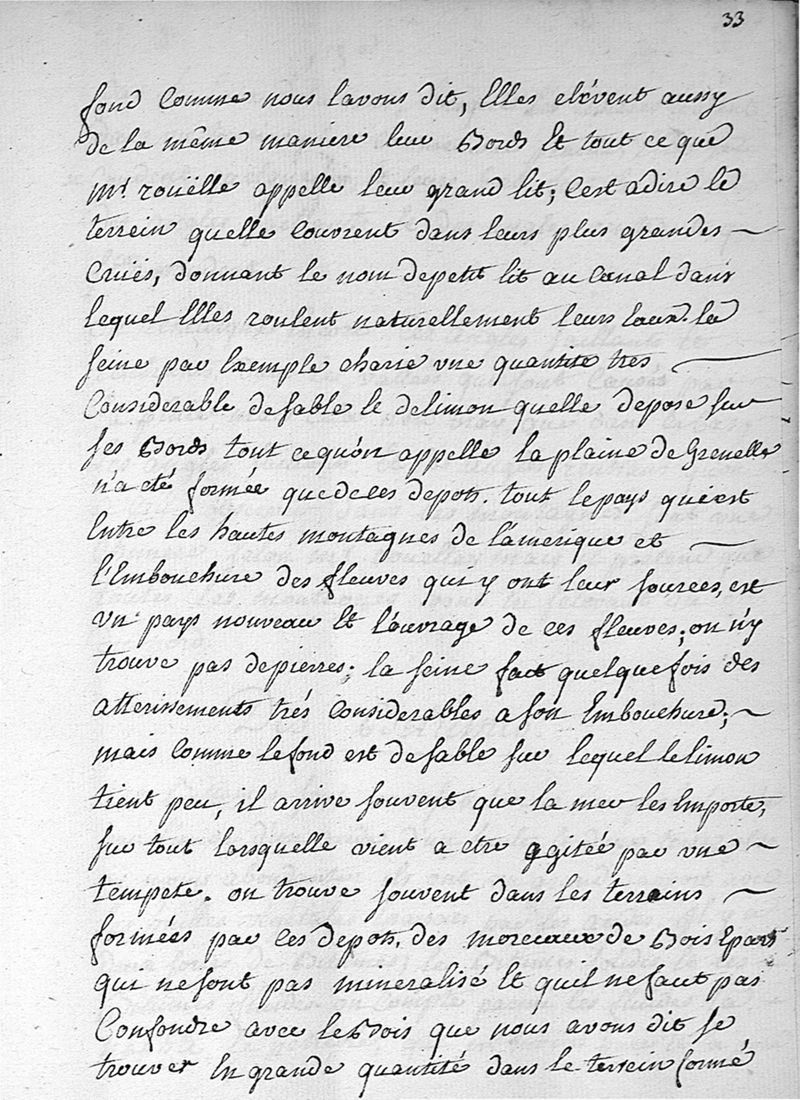 33
fond comme nous lavons dit, Elles elévent aussy
de la même maniere leur Bords Et tout ce que
Mr. rouëlle appelle leur grand lit; c'est adire le
terrein quelle couvrent dans leurs plus grandes
Cruës, donnant le nom depetit lit au Canal dans
lequel Elles roulent naturellement leurs Eaux. la
seine par Exemple charie vne quantité tres
Considerable desable Et delimon quelle depose sur
ses Bords tout cequ'on appelle la plaine de Grenelle
n'a eté formée quedeces depots. tout lepays quiest
Entre les hautes montagnes de l'amerique et
l'Embouchure des fleuves qui y ont leur sources, est
vn pays nouveau Et l'ouvrage de ces fleuves; on n'y
trouve pas depierres; la seine fait quelquefois des
atterissements trés Considerables a son Embouchure;
mais Comme lefond est desable sur lequel lelimon
tient peu, il arrive souvent que la mer les Emporte,
sur tout lorsquelle vient a etre agitée par vne
tempete. on trouve souvent dans les terrains
formées par ces depots, des morceaux de Bois Epars
qui nesont pas mineralisé Et quil nefaut pas
Confondre avec leBois que nous avons dit se
trouver En grande quantité dans le terrein formé